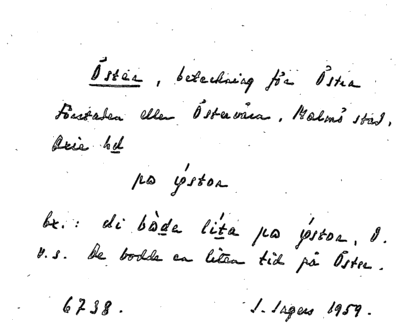 Öster, beteckning för Östra
Förstaden eller Östervärn, Malmö stad,
Oxie hd
pɑ ýstər
Ex.: di bòde líta pɑ ýstər, ɔ.
v.s. De bodde en liten tid på Öster.
6738. I. Ingers 1959.